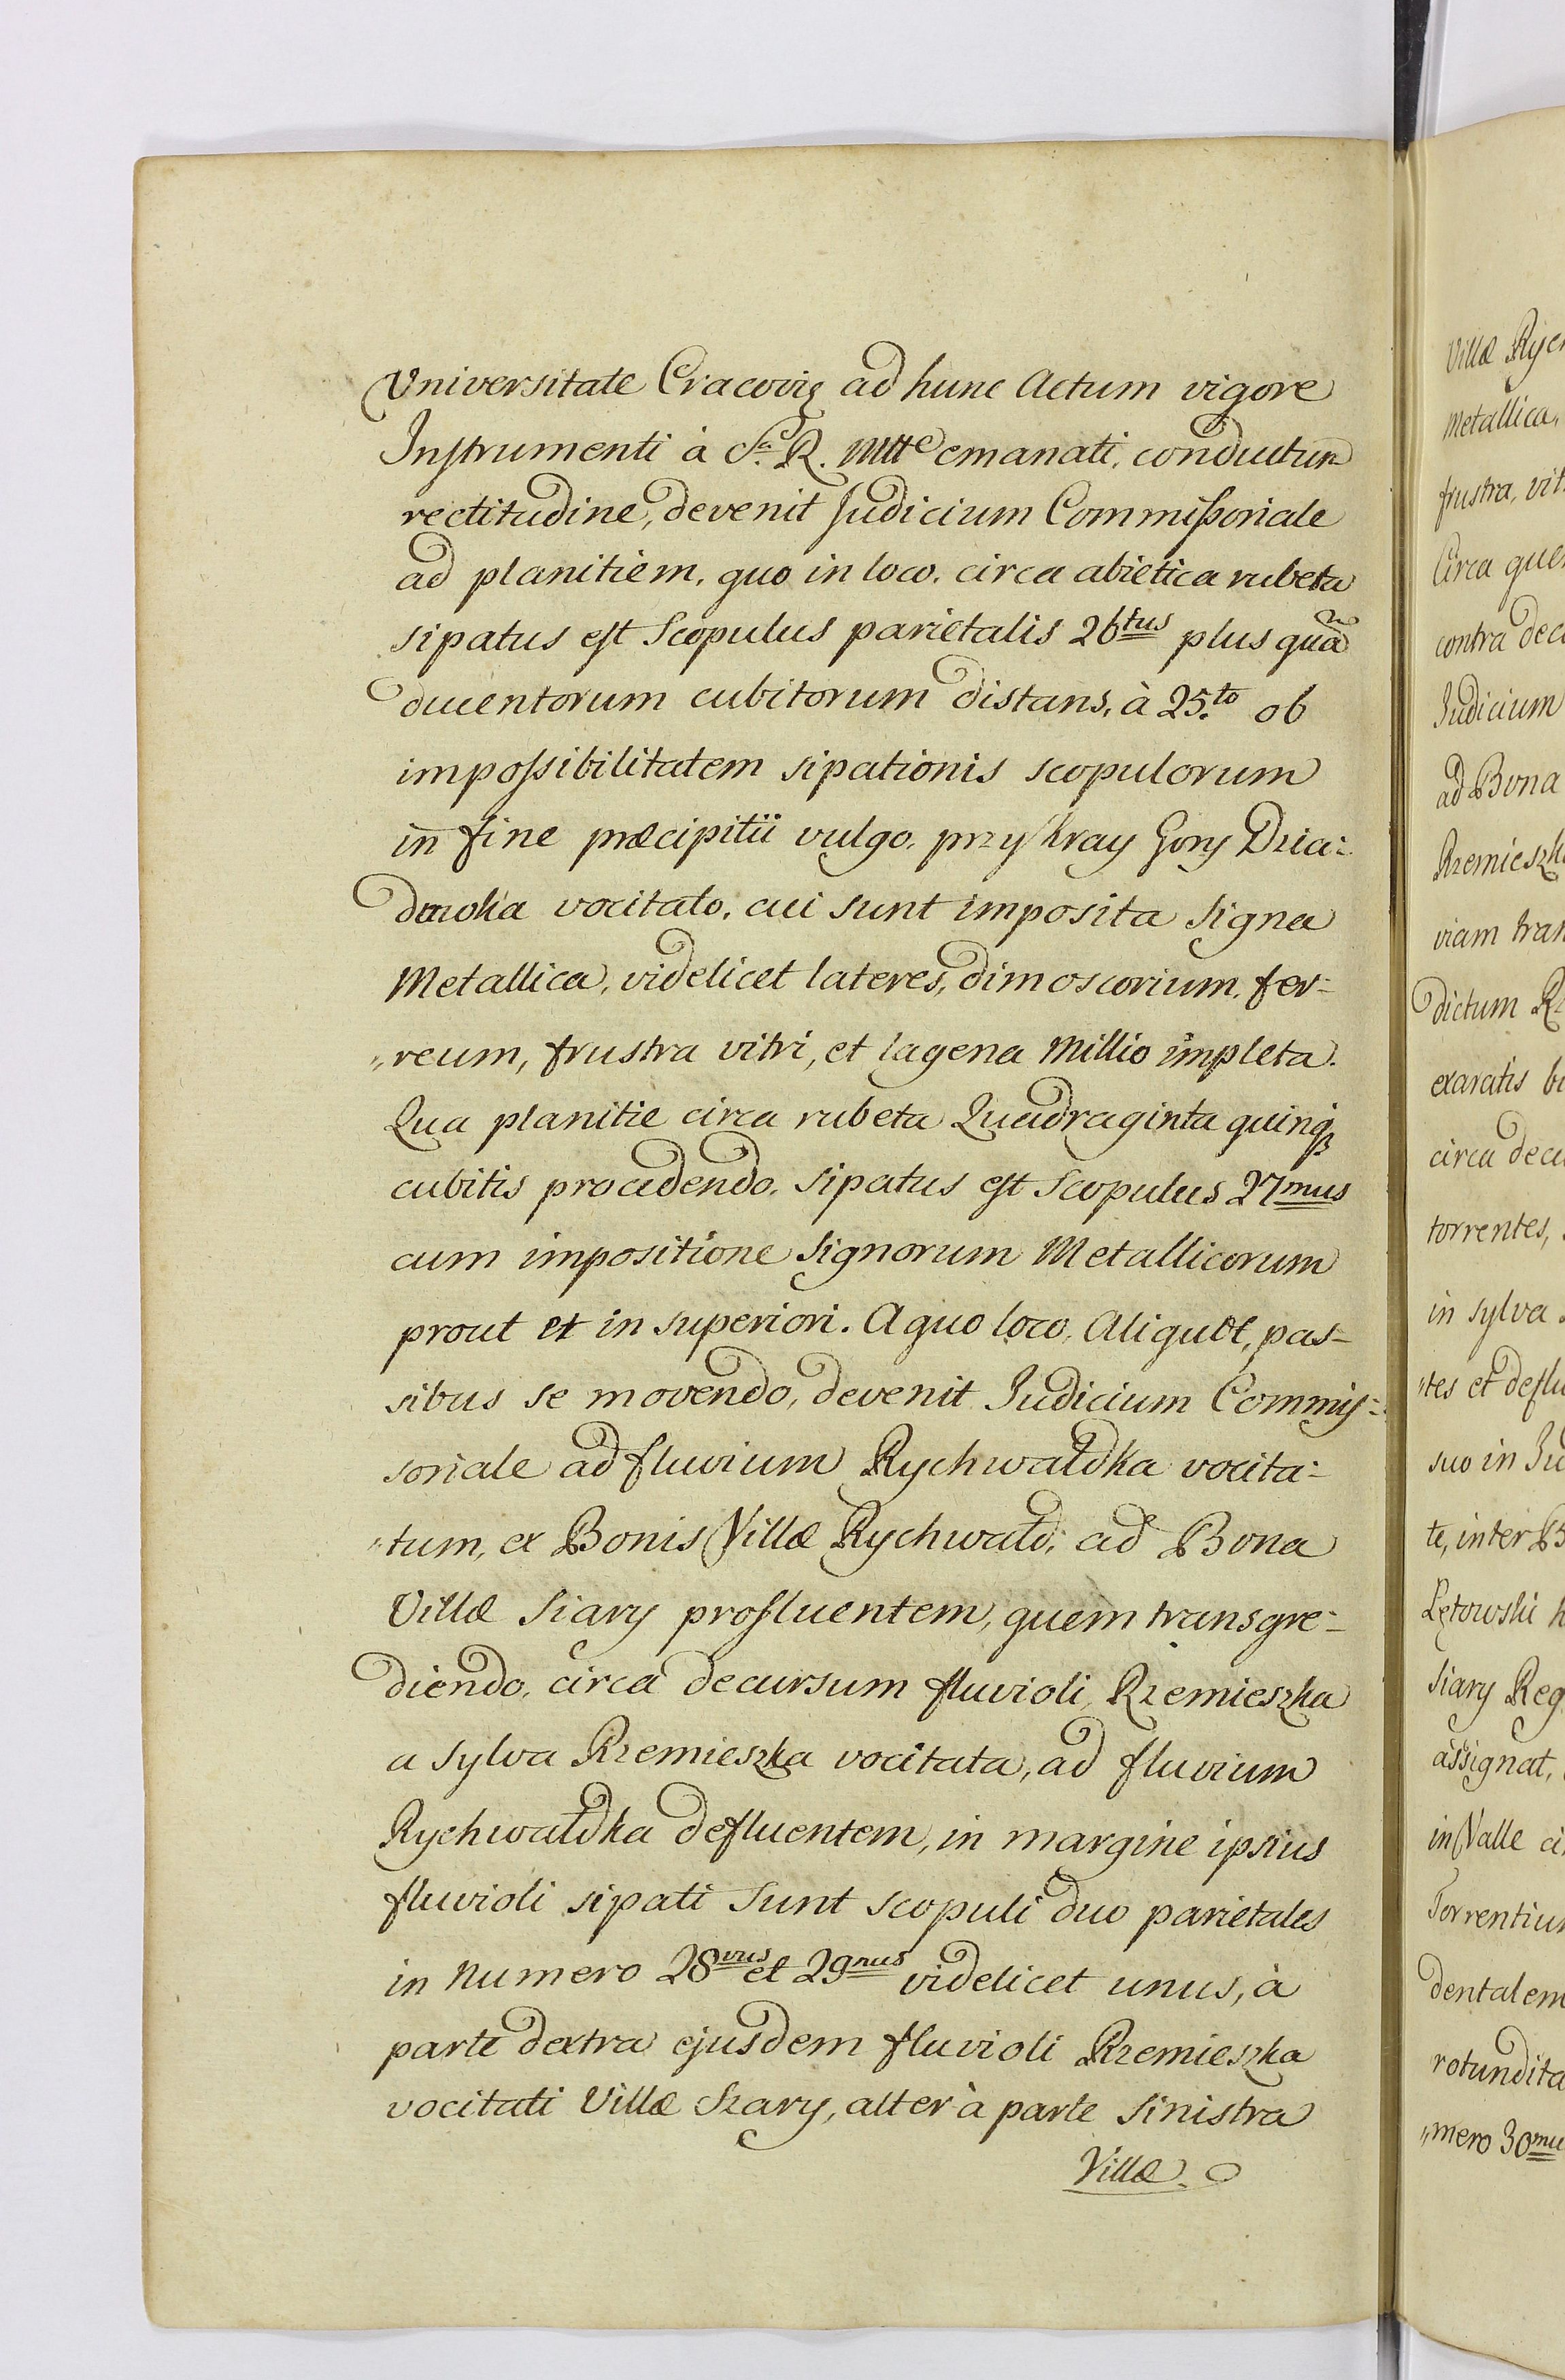 Universitate Cracovię ad hunc Actum vigore
Instrumenti à S.a R. Mtte emanati, conductum
rectitudine, devenit Judicium Commissoriale
ad planitiem, quo in loco, circa abietica rubeta
sipatus est Scopulus parietalis 26tus plus quã
ducentorum cubitorum distans, à 25.to ob
impossibilitatem sipationis scopulorum
in fine præcipitii vulgo, przykray Gory Dzia:
dowka vocitato, cui sunt imposita Signa
Metallica, videlicet lateres, dimoscorium, fer:
„reum, frustra vitri, et lagena Millio impleta.
Qua planitie circa rubeta Quadraginta quinq3
cubitis procedendo, sipatus est Scopulus 27mus
cum impositione Signorum Metallicorum
prout et in superiori. A quo loco, Aliquot, pas=
sibus se movendo, devenit Judicium Commis:
soriale ad fluvium Rychwałdka vocita:
„tum, ex Bonis Villæ Rychwałd, ad Bona
Villæ Siary profluentem, quem transgre=
diendo, circa decursum fluvioli, Rzemieszka
a sylva Rzemieszka vocitata, ad fluvium
Rychwałdka defluentem, in margine ipsius
fluvioli sipati Sunt scopuli duo parietales
in Numero 28vus et 29nus videlicet unus, à
parte dextra ejusdem fluvioli Rzemieszka
vocitati Villæ Szary, alter à parte Sinistra
Villæ
Villæ Rych
Metallica,
frustra, vit
Circa que
contra dec
Judicium
ad Bona
Rzemieszk
viam tran
dictum R
exaratis bi
circa decu
torrentes,
in sylva
„tes et deflu
suo in Ju
te, inter B
Lętowski h
Siary Reg
assignat,
in Valle ci
Torrentiu
dentalem
rotundita
„mero 30mu